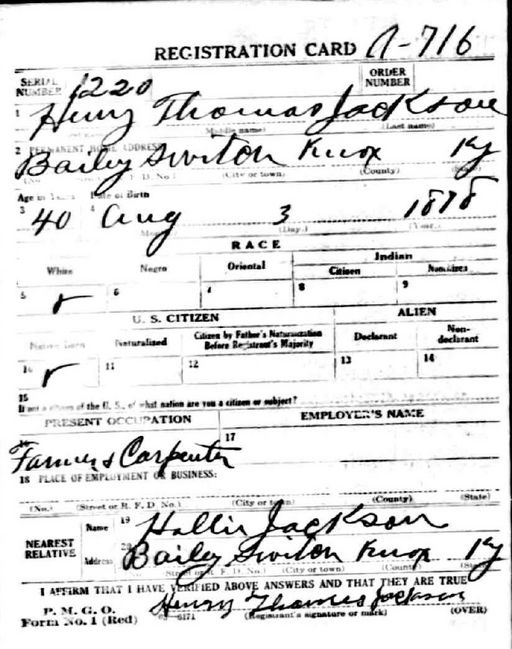 REGISTRATION CARD A-716
SERIAL NUMBER 1220 ORDER NUMBER
1 Henry Thomas Jackson
(Middle name) (Last name)
2 PERMANENT HOME ADDRESS
Bailey Switch Knox Ky
(No.) R. F. D. No.) (City or town) (County) (State)
Age in Years Date of Birth
3 40 4 Aug 3 1878
(Day.) (Year.)
RACE
White Negro Oriental Indian
Citizen Noncitizen
5 ✓ 6 7 8 9
U. S. CITIZEN ALIEN
Native Born Naturalized Citizen by Father's Naturalization Before Registrant's Majority Declarant Non-declarant
10 ✓ 11 12 13 14
15
If not a citizen of the U. S., of what nation are you a citizen or subject?
PRESENT OCCUPATION EMPLOYER'S NAME
16 Farmer & Carpenter 17
18 PLACE OF EMPLOYMENT OR BUSINESS:
(No.) (Street or R. F. D. No.) (City or town) (County) (State)
NEAREST RELATIVE Name 19 Hallie Jackson
Address 20 Bailey Switch Knox Ky
(Street or R. F. D. No.) (City or town) (County)
I AFFIRM THAT I HAVE VERIFIED ABOVE ANSWERS AND THAT THEY ARE TRUE
P. M. G. O.
Form No. 1 (Red) Henry Thomas Jackson
(Registrant's signature or mark) (OVER)